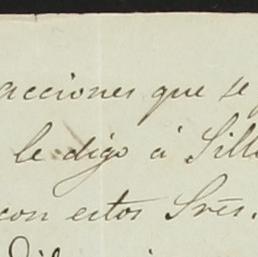 acciones que se
le digo á Sill
con estos Srēs.